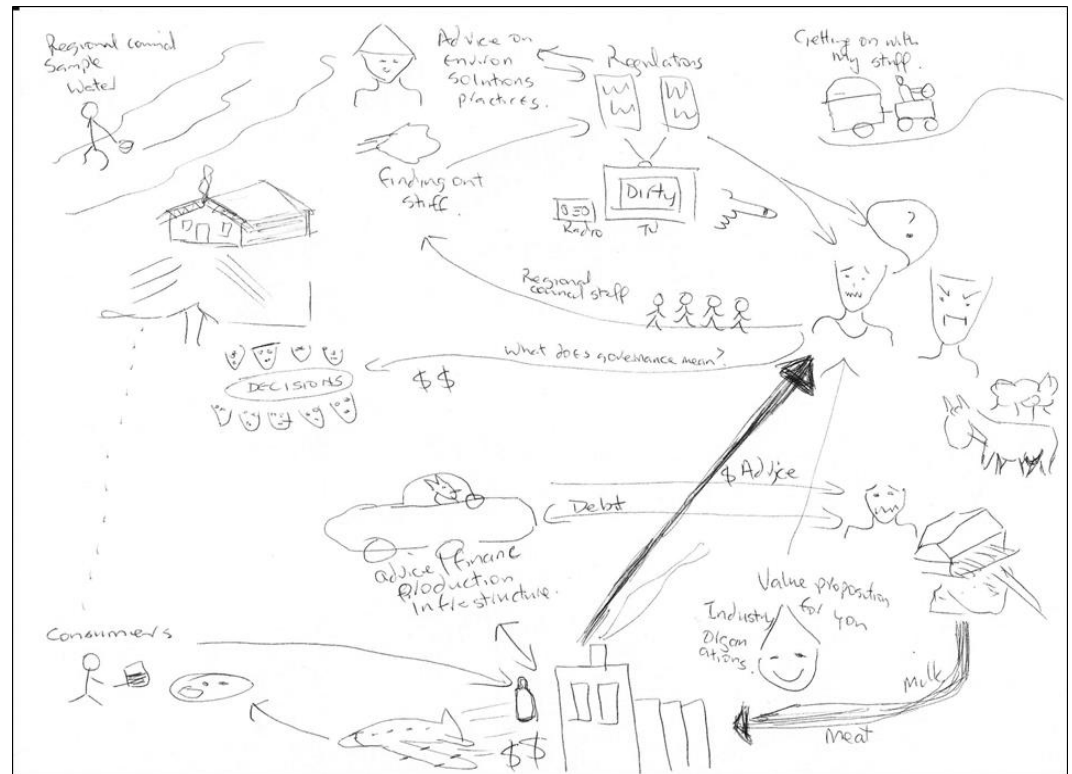 Regional council
Sample
Water
Advice on
Environ
solutions
practices.
Regulations
Getting on with
my stuff.
finding out
stuff.
Dirty
Radio
TV
?
Regional
council staff
What does governance mean?
$$
DECISIONS
$ Advice
Debt
advice / finance
production
infrestructure.
Value proposition
for you
Industry
Organ
ations.
Consumers
Milk
Meat
$$